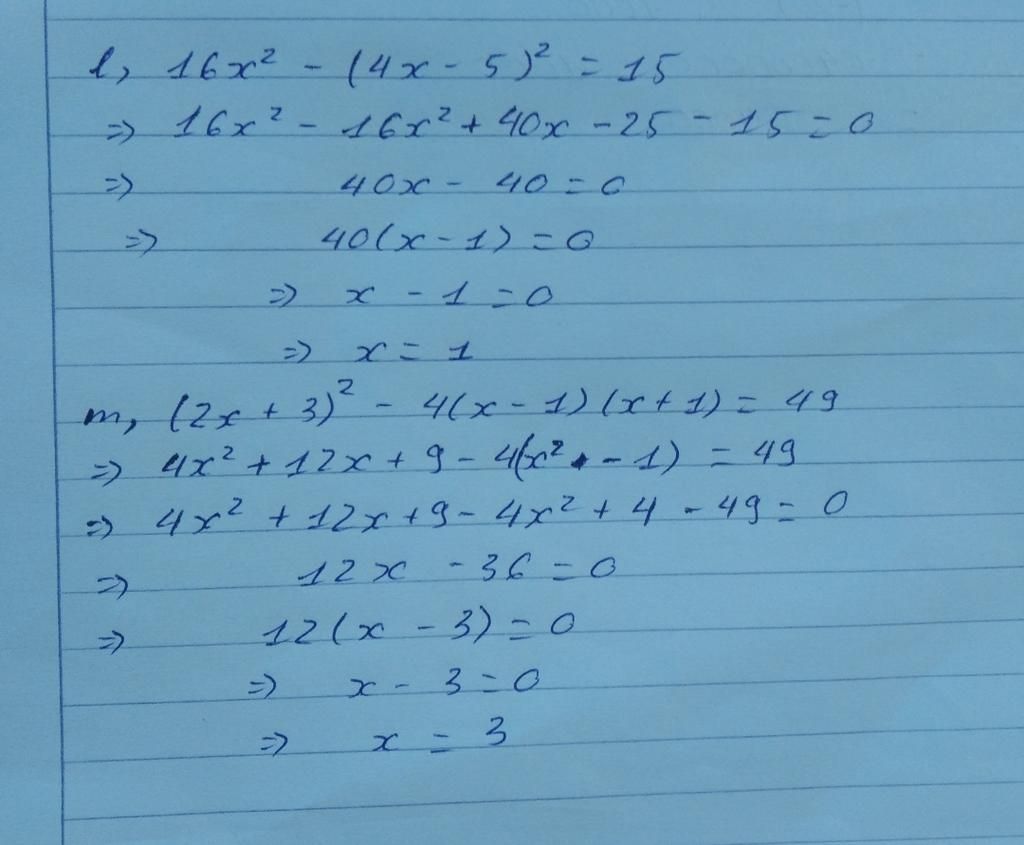 l, 16x² - (4x - 5)² = 15
=> 16x² - 16x² + 40x - 25 - 15 = 0
=> 40x - 40 = 0
=> 40(x - 1) = 0
=> x - 1 = 0
=> x = 1
m, (2x + 3)² - 4(x - 1)(x + 1) = 49
=> 4x² + 12x + 9 - 4(x² - 1) = 49
=> 4x² + 12x + 9 - 4x² + 4 - 49 = 0
=> 12x - 36 = 0
=> 12(x - 3) = 0
=> x - 3 = 0
=> x = 3